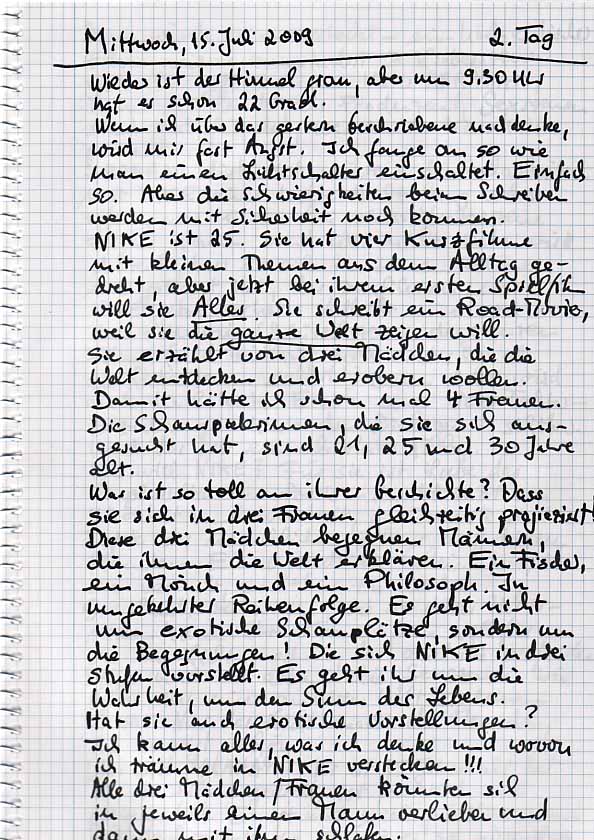 Mittwoch, 15. Juli 2009 2. Tag
Wieder ist der Himmel grau, aber um 9.30 Uhr
hat es schon 22 Grad.
Wenn ich über das gestern beschriebene nachdenke,
wird mir fast Angst. Ich fange an so wie
man einen Lichtschalter einschaltet. Einfach
so. Aber die Schwierigkeiten beim Schreiben
werden mit Sicherheit noch kommen.
NIKE ist 25. Sie hat vier Kurzfilme
mit kleinen Themen aus dem Alltag ge-
dreht, aber jetzt bei ihrem ersten Spielfilm
will sie Alles. Sie schreibt ein Road-Movie,
weil sie die ganze Welt zeigen will.
Sie erzählt von drei Mädchen, die die
Welt entdecken und erobern wollen.
Damit hätte ich schon mal 4 Frauen.
Die Schauspielerinnen, die sie sich aus-
gesucht hat, sind 21, 25 und 30 Jahre
alt.
Was ist so toll an ihrer Geschichte? Dass
sie sich in drei Frauen gleichzeitig projieziert!
Diese drei Mädchen begegnen Männern,
die ihnen die Welt erklären. Ein Fischer,
ein Mönch und ein Philosoph. In
umgekehrter Reihenfolge. Es geht nicht
um exotische Schauplätze, sondern um
die Begegnungen! Die sich NIKE in drei
Stufen vorstellt. Es geht ihr um die
Wahrheit, um den Sinn des Lebens.
Hat sie auch erotische Vorstellungen?
Ich kann alles, was ich denke und wovon
ich träume in NIKE verstecken!!!
Alle drei Mädchen/Frauen könnten sich
in jeweils einen Mann verlieben und
dann mit ihm schlafen.